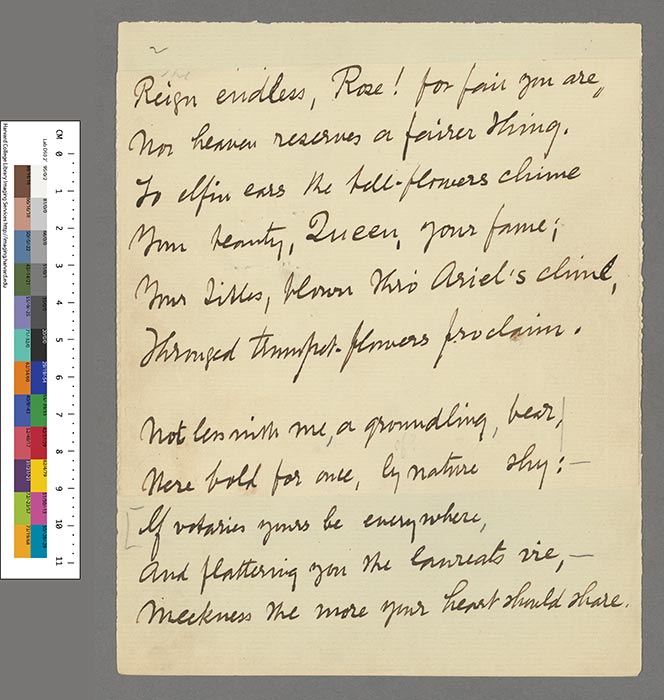 2
Reign endless, Rose! for fair you are,
Nor heaven reserves a fairer thing.
To elfin ears the bell-flowers chime
Your beauty, Queen, your fame;
Your titles, blown thro' Ariel's clime,
Thronged trumpet-flowers proclaim.
Not less with me, a groundling, bear,
Here bold for once, by nature shy:—
If votaries yours be everywhere,
And flattering you the laureats vie,—
Meekness the more your heart should share.
CM 0 1 2 3 4 5 6 7 8 9 10 11
Harvard College Library Imaging Services